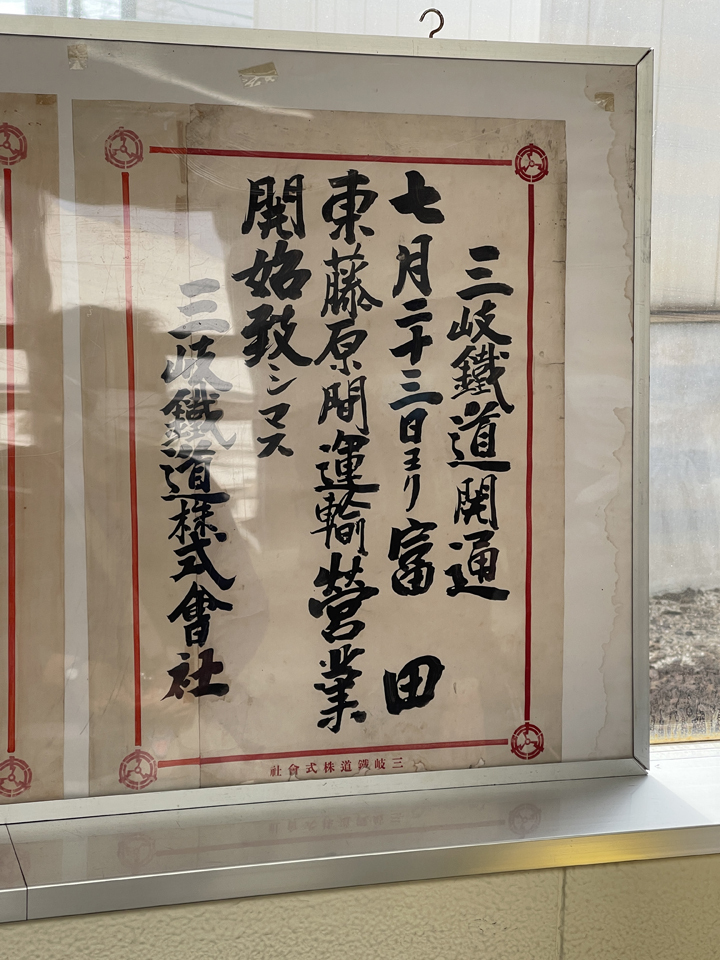 三岐鐵道開通
七月二十三日ヨリ富田
東藤原間運輸營業
開始致シマス
三岐鐵道株式會社
三岐鐵道株式會社